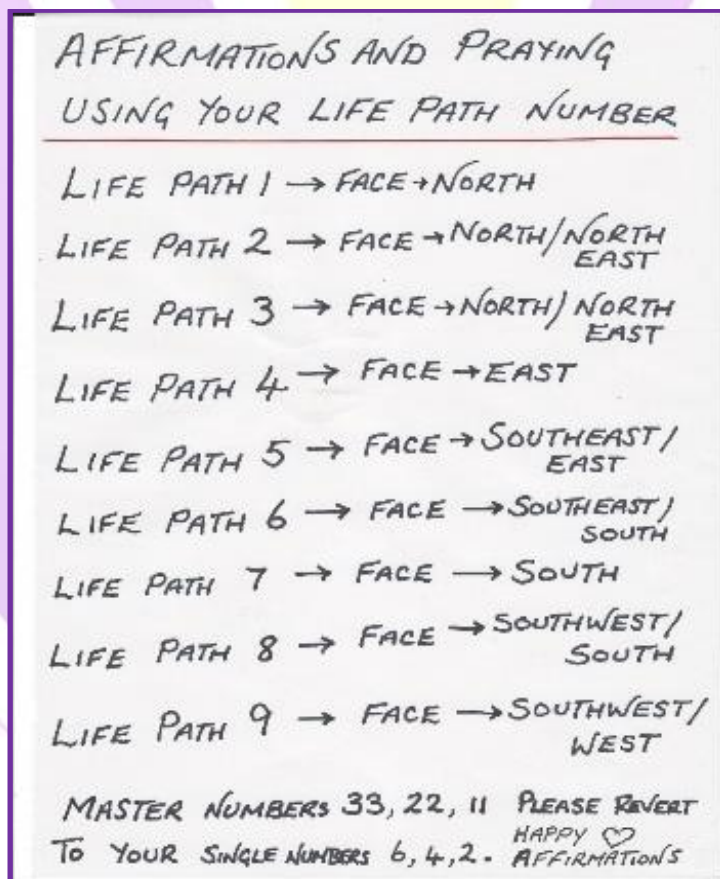 AFFIRMATIONS AND PRAYING
USING YOUR LIFE PATH NUMBER
LIFE PATH 1 → FACE → NORTH
LIFE PATH 2 → FACE → NORTH/NORTH
EAST
LIFE PATH 3 → FACE → NORTH/NORTH
EAST
LIFE PATH 4 → FACE → EAST
LIFE PATH 5 → FACE → SOUTHEAST/
EAST
LIFE PATH 6 → FACE → SOUTHEAST/
SOUTH
LIFE PATH 7 → FACE → SOUTH
LIFE PATH 8 → FACE → SOUTHWEST/
SOUTH
LIFE PATH 9 → FACE → SOUTHWEST/
WEST
MASTER NUMBERS 33, 22, 11 PLEASE REVERT
TO YOUR SINGLE NUMBERS 6, 4, 2. HAPPY ♡
AFFIRMATIONS